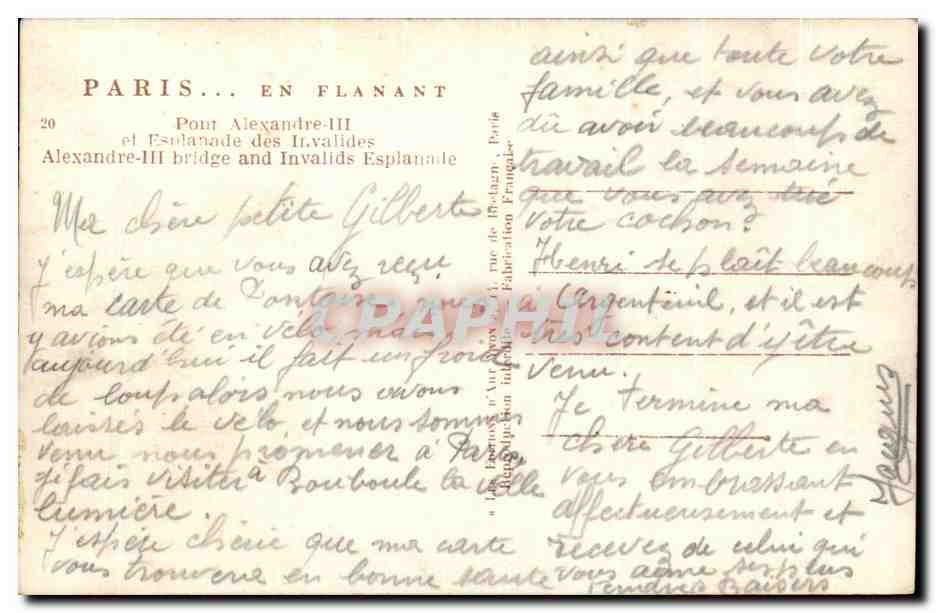 PARIS... EN FLANANT
20 Pont Alexandre-III
et Esplanade des Invalides
Alexandre-III bridge and Invalids Esplanade
Ma chère petite Gilberte
J'espère que vous avez reçu
ma carte de Pontoise, nous
y avions été en vélo mais
aujourd'hui il fait un froid
de loup alors nous avons
laissés le vélo, et nous sommes
venu nous promener à Paris,
je fais visiter à Bouboule la ville
lumière.
J'espère chérie que ma carte
vous trouvera en bonne santé
"LES Éditions d'Art YVON", rue de Bretagne, Paris
Reproduction interdite Fabrication Française
ainsi que toute votre
famille, et vous avez
dû avoir beaucoup de
travail la semaine
que vous avez tué
votre cochon?
Henri se plaît beaucoup
à Argenteuil, et il est
très content d'y être
venu.
Je termine ma
chère Gilberte en
vous embrassant
affectueusement et
recevez de celui qui
vous aime ses plus
tendres Baisers
Jacques
CPAPHIL